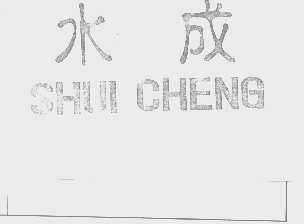 水成
SHUI CHENG